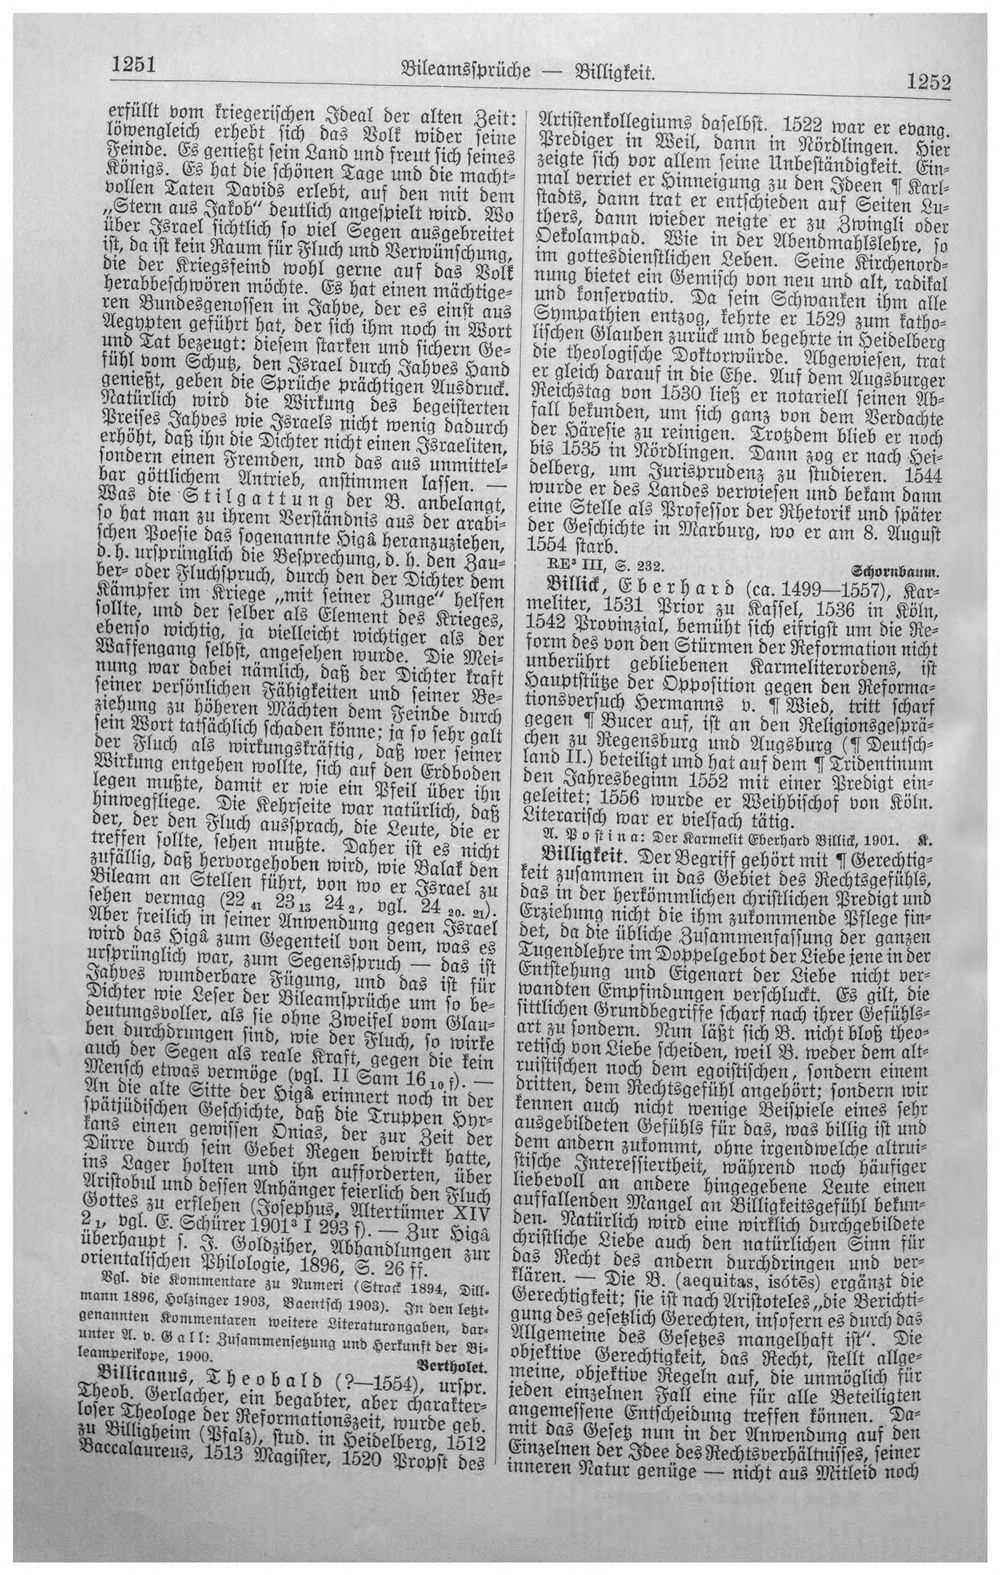 1251
Bileamssprüche — Billigkeit.
1252
erfüllt vom kriegerischen Ideal der alten Zeit:
löwengleich erhebt sich das Volk wider seine
Feinde. Es genießt sein Land und freut sich seines
Königs. Es hat die schönen Tage und die macht-
vollen Taten Davids erlebt, auf den mit dem
„Stern aus Jakob“ deutlich angespielt wird. Wo
über Israel sichtlich so viel Segen ausgebreitet
ist, da ist kein Raum für Fluch und Verwünschung,
die der Kriegsfeind wohl gerne auf das Volk
herabbeschwören möchte. Es hat einen mächtige-
ren Bundesgenossen in Jahve, der es einst aus
Aegypten geführt hat, der sich ihm noch in Wort
und Tat bezeugt: diesem starken und sichern Ge-
fühl vom Schutz, den Israel durch Jahves Hand
genießt, geben die Sprüche prächtigen Ausdruck.
Natürlich wird die Wirkung des begeisterten
Preises Jahves wie Israels nicht wenig dadurch
erhöht, daß ihn die Dichter nicht einen Israeliten,
sondern einen Fremden, und das aus unmittel-
bar göttlichem Antrieb, anstimmen lassen. —
Was die Stilgattung der B. anbelangt,
so hat man zu ihrem Verständnis aus der arabi-
schen Poesie das sogenannte Higâ heranzuziehen,
d. h. ursprünglich die Besprechung, d. h. den Zau-
ber- oder Fluchspruch, durch den der Dichter dem
Kämpfer im Kriege „mit seiner Zunge“ helfen
sollte, und der selber als Element des Krieges,
ebenso wichtig, ja vielleicht wichtiger als der
Waffengang selbst, angesehen wurde. Die Mei-
nung war dabei nämlich, daß der Dichter kraft
seiner persönlichen Fähigkeiten und seiner Be-
ziehung zu höheren Mächten dem Feinde durch
sein Wort tatsächlich schaden könne; ja so sehr galt
der Fluch als wirkungskräftig, daß wer seiner
Wirkung entgehen wollte, sich auf den Erdboden
legen mußte, damit er wie ein Pfeil über ihn
hinwegfliege. Die Kehrseite war natürlich, daß
der, der den Fluch aussprach, die Leute, die er
treffen sollte, sehen mußte. Daher ist es nicht
zufällig, daß hervorgehoben wird, wie Balak den
Bileam an Stellen führt, von wo er Israel zu
sehen vermag (22 41 23 13 24 2, vgl. 24 20. 21).
Aber freilich in seiner Anwendung gegen Israel
wird das Higâ zum Gegenteil von dem, was es
ursprünglich war, zum Segensspruch — das ist
Jahves wunderbare Fügung, und das ist für
Dichter wie Leser der Bileamsprüche um so be-
deutungsvoller, als sie ohne Zweifel vom Glau-
ben durchdrungen sind, wie der Fluch, so wirke
auch der Segen als reale Kraft, gegen die kein
Mensch etwas vermöge (vgl. II Sam 16 10 f). —
An die alte Sitte der Higâ erinnert noch in der
spätjüdischen Geschichte, daß die Truppen Hyr-
kans einen gewissen Onias, der zur Zeit der
Dürre durch sein Gebet Regen bewirkt hatte,
ins Lager holten und ihn aufforderten, über
Aristobul und dessen Anhänger feierlich den Fluch
Gottes zu erflehen (Josephus, Altertümer XIV
2 1, vgl. E. Schürer 1901³ I 293 f). — Zur Higâ
überhaupt s. J. Goldziher, Abhandlungen zur
orientalischen Philologie, 1896, S. 26 ff.
Vgl. die Kommentare zu Numeri (Strack 1894, Dill-
mann 1896, Holzinger 1903, Baentsch 1903). In den letzt-
genannten Kommentaren weitere Literaturangaben, dar-
unter A. v. Gall: Zusammensetzung und Herkunft der Bi-
leamperikope, 1900.
Bertholet.
Billicanus, Theobald (?—1554), urspr.
Theob. Gerlacher, ein begabter, aber charakter-
loser Theologe der Reformationszeit, wurde geb.
zu Billigheim (Pfalz), stud. in Heidelberg, 1512
Baccalaureus, 1513 Magister, 1520 Propst des
Artistenkollegiums daselbst. 1522 war er evang.
Prediger in Weil, dann in Nördlingen. Hier
zeigte sich vor allem seine Unbeständigkeit. Ein-
mal verriet er Hinneigung zu den Ideen ¶ Karl-
stadts, dann trat er entschieden auf Seiten Lu-
thers, dann wieder neigte er zu Zwingli oder
Oekolampad. Wie in der Abendmahlslehre, so
im gottesdienstlichen Leben. Seine Kirchenord-
nung bietet ein Gemisch von neu und alt, radikal
und konservativ. Da sein Schwanken ihm alle
Sympathien entzog, kehrte er 1529 zum katho-
lischen Glauben zurück und begehrte in Heidelberg
die theologische Doktorwürde. Abgewiesen, trat
er gleich darauf in die Ehe. Auf dem Augsburger
Reichstag von 1530 ließ er notariell seinen Ab-
fall bekunden, um sich ganz von dem Verdachte
der Häresie zu reinigen. Trotzdem blieb er noch
bis 1535 in Nördlingen. Dann zog er nach Hei-
delberg, um Jurisprudenz zu studieren. 1544
wurde er des Landes verwiesen und bekam dann
eine Stelle als Professor der Rhetorik und später
der Geschichte in Marburg, wo er am 8. August
1554 starb.
RE³ III, S. 232.
Schornbaum.
Billick, Eberhard (ca. 1499—1557), Kar-
meliter, 1531 Prior zu Kassel, 1536 in Köln,
1542 Provinzial, bemüht sich eifrigst um die Re-
form des von den Stürmen der Reformation nicht
unberührt gebliebenen Karmeliterordens, ist
Hauptstütze der Opposition gegen den Reforma-
tionsversuch Hermanns v. ¶ Wied, tritt scharf
gegen ¶ Bucer auf, ist an den Religionsgesprä-
chen zu Regensburg und Augsburg (¶ Deutsch-
land II.) beteiligt und hat auf dem ¶ Tridentinum
den Jahresbeginn 1552 mit einer Predigt ein-
geleitet; 1556 wurde er Weihbischof von Köln.
Literarisch war er vielfach tätig.
A. Postina: Der Karmelit Eberhard Billick, 1901. K.
Billigkeit. Der Begriff gehört mit ¶ Gerechtig-
keit zusammen in das Gebiet des Rechtsgefühls,
das in der herkömmlichen christlichen Predigt und
Erziehung nicht die ihm zukommende Pflege fin-
det, da die übliche Zusammenfassung der ganzen
Tugendlehre im Doppelgebot der Liebe jene in der
Entstehung und Eigenart der Liebe nicht ver-
wandten Empfindungen verschluckt. Es gilt, die
sittlichen Grundbegriffe scharf nach ihrer Gefühls-
art zu sondern. Nun läßt sich B. nicht bloß theo-
retisch von Liebe scheiden, weil B. weder dem alt-
ruistischen noch dem egoistischen, sondern einem
dritten, dem Rechtsgefühl angehört; sondern wir
kennen auch nicht wenige Beispiele eines sehr
ausgebildeten Gefühls für das, was billig ist und
dem andern zukommt, ohne irgendwelche altrui-
stische Interessiertheit, während noch häufiger
liebevoll an andere hingegebene Leute einen
auffallenden Mangel an Billigkeitsgefühl bekun-
den. Natürlich wird eine wirklich durchgebildete
christliche Liebe auch den natürlichen Sinn für
das Recht des andern durchdringen und ver-
klären. — Die B. (aequitas, isótēs) ergänzt die
Gerechtigkeit; sie ist nach Aristoteles „die Berichti-
gung des gesetzlich Gerechten, insofern es durch das
Allgemeine des Gesetzes mangelhaft ist“. Die
objektive Gerechtigkeit, das Recht, stellt allge-
meine, objektive Regeln auf, die unmöglich für
jeden einzelnen Fall eine für alle Beteiligten
angemessene Entscheidung treffen können. Da-
mit das Gesetz nun in der Anwendung auf den
Einzelnen der Idee des Rechtsverhältnisses, seiner
inneren Natur genüge — nicht aus Mitleid noch